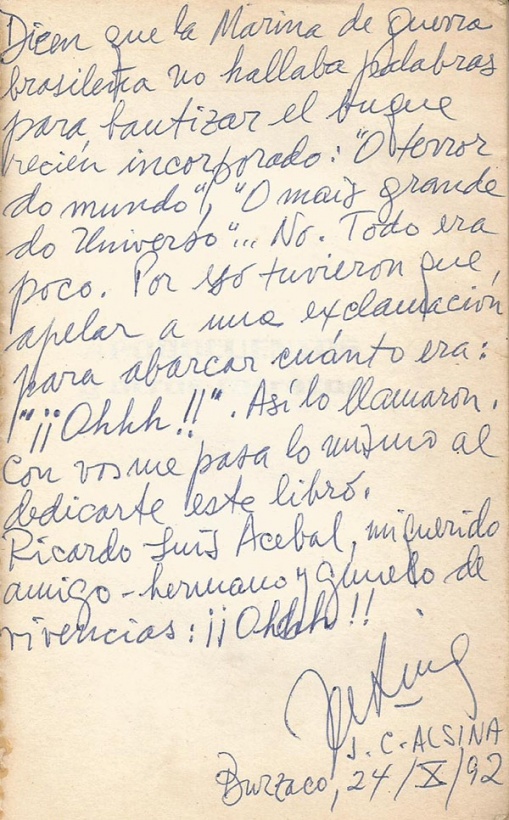 Dicen que la Marina de guerra
brasileña no hallaba palabras
para bautizar el buque
recién incorporado: "O terror
do mundo", "O mais grande
do Universo"... No. Todo era
poco. Por eso tuvieron que,
apelar a una exclamación
para abarcar cuánto era:
"¡¡Ohhh!!". Asi lo llamaron.
Con vos me pasa lo mismo al
dedicarte este libro.
Ricardo Luis Acebal, mi querido
amigo-hermano y gemelo de
vivencias: ¡¡Ohhh!!
J. C. ALSINA
Burzaco, 24/X/92